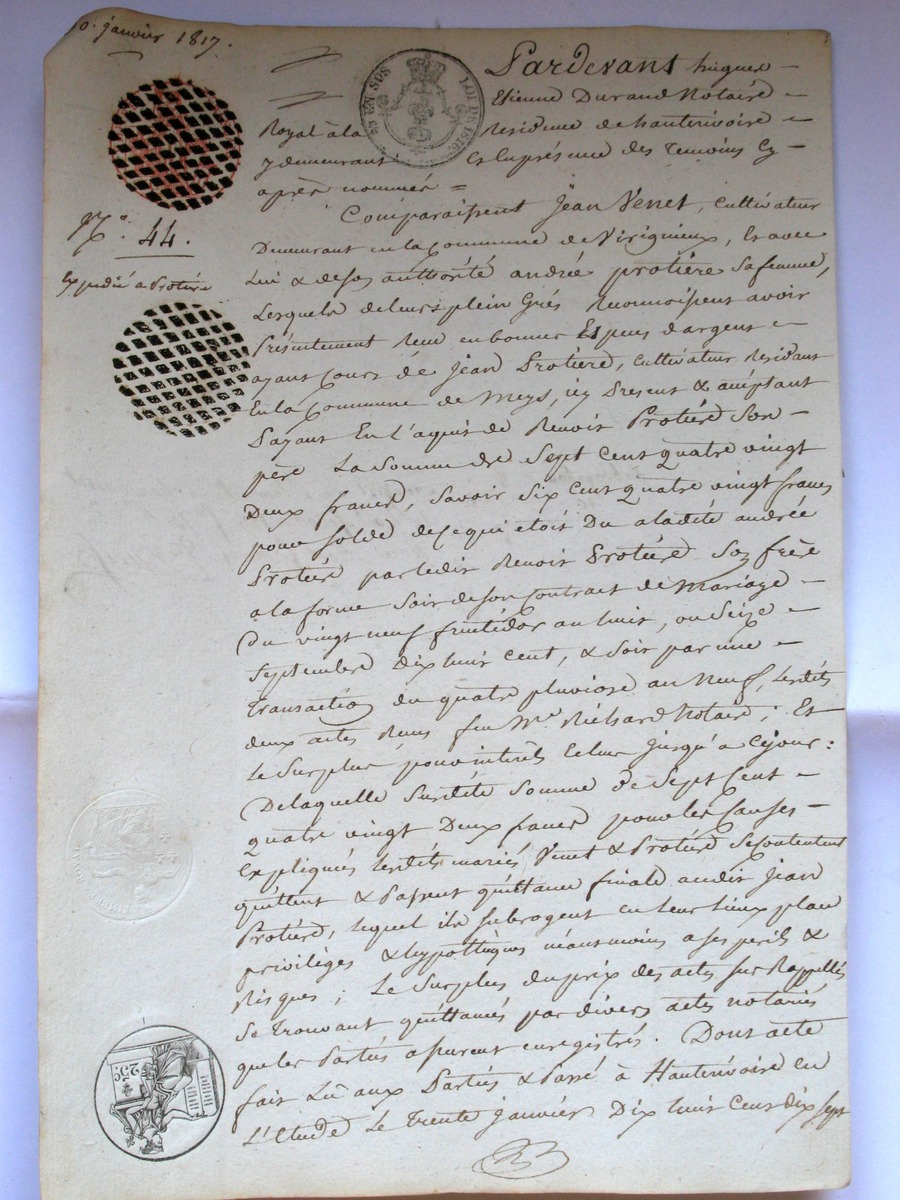 30. janvier 1817.
EN SUS
LOI DE 1816
Pardevant hugues
Etienne Durand Notaire
Royal à la Residence de hauterivoire
y demeurant Et en presence des Temoins Cy
après nommés =
N.º 44.
Expedié a Protière
Comparaissent Jean Venet, Cultivateur
Demeurant en la Commune de Virignieux, Et avec
Lui & de son authorité andrée protière sa femme,
Lesquels de leurs plein Grés Reconnoissent avoir
Présentement Reçu en bonnes Especes d'argent
ayant Cours de Jean Protière, Cultivateur Residant
En la Commune de Meys, icy Present & acceptant
Payant En l'aquit de Benoit Protière Son
père La Somme de Sept Cent quatre vingt
Deux francs, savoir six Cent quatre vingt francs
pour solde de ce qui etoit Du a ladite andrée
Protière par ledit Benoit Protière Son frère
a la forme Soit de son Contrat de Mariage
Du vingt neuf fructidor an huit, ou Seize
Septembre Dix huit Cent, & Soit par une
Transaction du quatre pluviose an Neuf, lesdits
deux actes Reçus feu Me Richard Notaire; Et
Le Surplus pour interets Echus jusqu'a Cejour:
De laquelle Susdite Somme de Sept Cent
quatre vingt Deux francs pour les Causes
Expliquées lesdits mariés Venet & Protière Se Contentent
quittent & Passent quittance finale audit Jean
Protière, lequel ils subrogent en leur lieux place
privilèges & hypothèques néanmoins a ses perils &
Risques; Le Surplus du prix des actes sus Rappellés
Se Trouvant quittancés par divers actes notariés
que les Parties assurent enregistrés. Dont acte
fait Lû aux Parties & Passé à Hauterivoire En
L'Etude Le Trente janvier Dix huit Cent dix sept